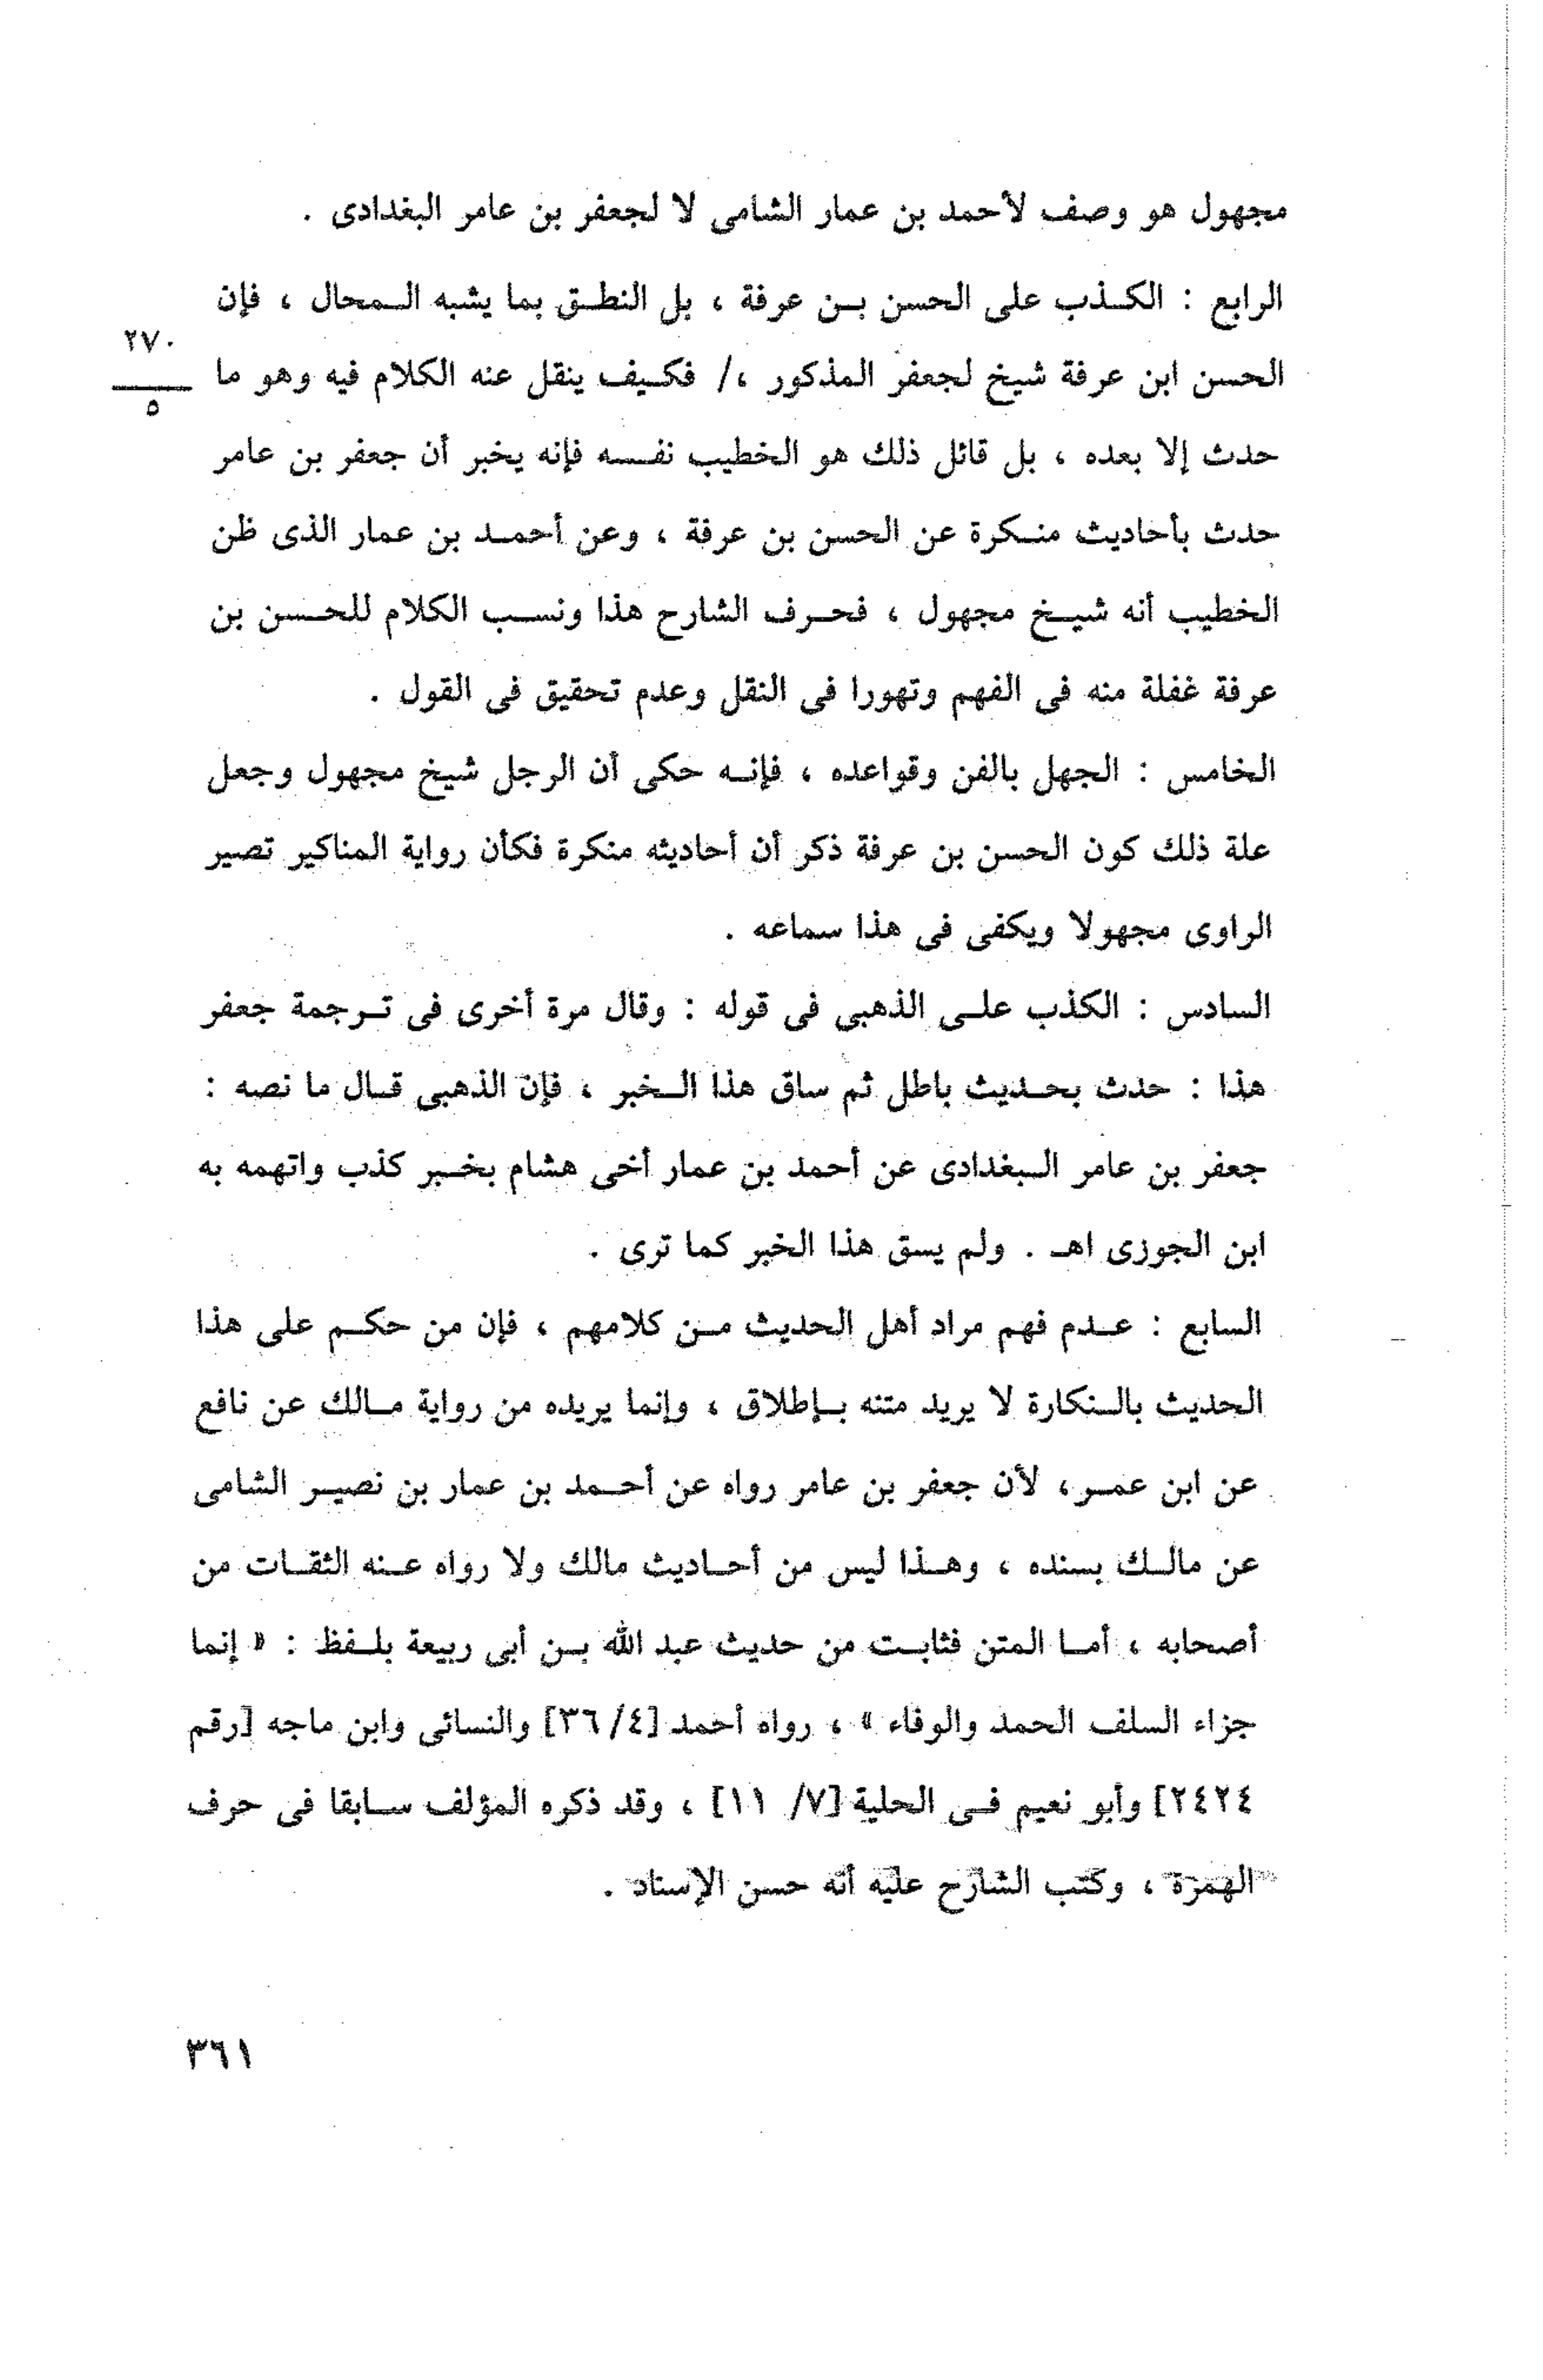 مجهول هو وصف لأحمد بن عمار الشامى لا لجعفر بن عامر البغدادى .
الرابع : الكـذب على الحسن بـن عرفة ، بل النطـق بما يشبه الـمحال ، فإن
٢٧٠
٥
الحسن ابن عرفة شيخ لجعفر المذكور ،/ فكـيف ينقل عنه الكلام فيه وهو ما
حدث إلا بعده ، بل قائل ذلك هو الخطيب نفـسه فإنه يخبر أن جعفر بن عامر
حدث بأحاديث منـكرة عن الحسن بن عرفة ، وعن أحمـد بن عمار الذى ظن
الخطيب أنه شيـخ مجهول ، فحـرف الشارح هذا ونسـب الكلام للحـسن بن
عرفة غفلة منه فى الفهم وتهورا فى النقل وعدم تحقيق فى القول .
الخامس : الجهل بالفن وقواعده ، فإنـه حكى أن الرجل شيخ مجهول وجعل
علة ذلك كون الحسن بن عرفة ذكر أن أحاديثه منكرة فكأن رواية المناكير تصير
الراوى مجهولا ويكفى فى هذا سماعه .
السادس : الكذب علـى الذهبى فى قوله : وقال مرة أخرى فى تـرجمة جعفر
هذا : حدث بحـديث باطل ثم ساق هذا الـخبر ، فإن الذهبى قـال ما نصه :
جعفر بن عامر الـبغدادى عن أحمد بن عمار أخى هشام بخـبر كذب واتهمه به
ابن الجوزى اهـ . ولم يسق هذا الخبر كما ترى .
السابع : عـدم فهم مراد أهل الحديث مـن كلامهم ، فإن من حكـم على هذا
الحديث بالـنكارة لا يريد متنه بـإطلاق ، وإنما يريده من رواية مـالك عن نافع
عن ابن عمـر، لأن جعفر بن عامر رواه عن أحـمد بن عمار بن نصيـر الشامى
عن مالـك بسنده ، وهـذا ليس من أحـاديث مالك ولا رواه عـنه الثقـات من
أصحابه ، أمـا المتن فثابـت من حديث عبد الله بـن أبى ربيعة بلـفظ : « إنما
جزاء السلف الحمد والوفاء » ، رواه أحمد [٣٦/٤] والنسائى وابن ماجه [رقم
٢٤٢٤] وأبو نعيم فـى الحلية [٧/ ١١] ، وقد ذكره المؤلف سـابقا فى حرف
الهمزة ، وكتب الشارح عليه أنه حسن الإسناد .
٣٦١